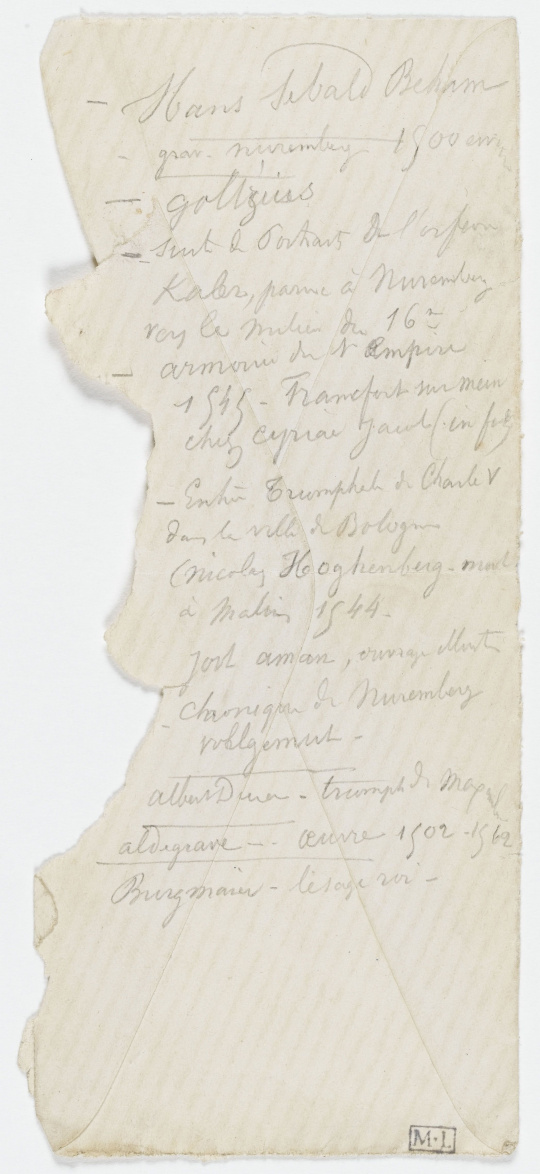 – Hans Sebald Beham
- grav. nuremberg 1500
– goltzius
– suite de Portraits de l'orfevre
Kaler, parue à Nuremberg
vers le milieu du 16e
– armoirie du St Empire
1545 – Francfort sur mein
chez Cyriac Jacob (in fol)
– Entrée Triomphale de Charle V
dans la ville de Bologne
(Nicolas Hoghenberg – mort
à Malines 1544 –
Jost aman, ouvrage illustré
- chronique de Nuremberg
volhgemut –
albert Durer – triomphe de Max
aldegrave – – œuvre 1502 – 1562
Burgmaïer – le sage roi –
M·L